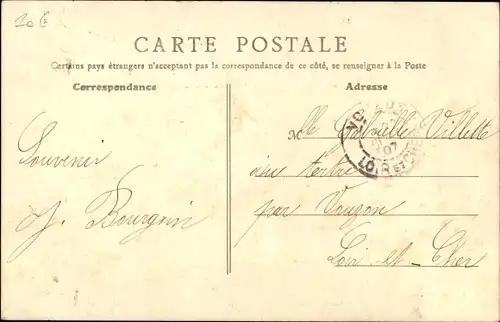 20 €
CARTE POSTALE
Certains pays étrangers n'acceptant pas la correspondance de ce côté, se renseigner à la Poste
Correspondance
Adresse
M lle Gabrielle Villette
au tertre
par Vouzon
Loir-et-Cher
Souvenir
J. Bourgoin
07
LOIR ET CHER